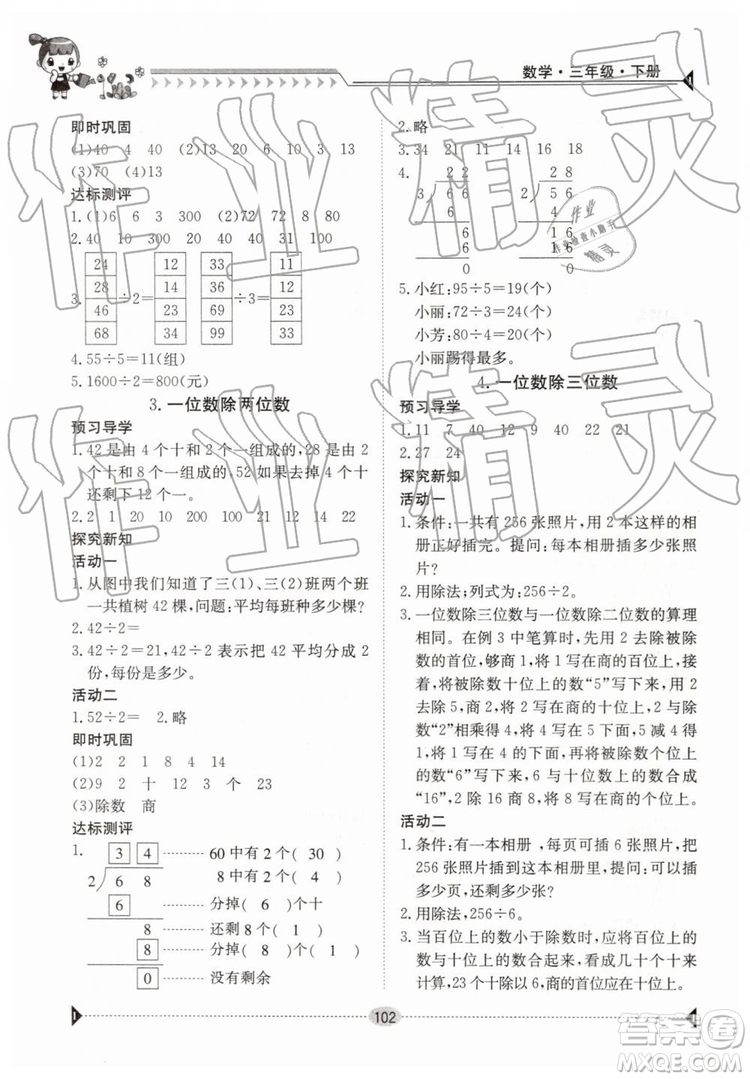 数学·三年级·下册
即时巩固
(1)40 4 40 (2)13 20 6 10 3 13
(3)70 (4)13
达标测评
1.(1)6 6 3 300 (2)72 72 8 80
2.40 10 300 40 80 30 31 100
3.
24
28
46
68
÷2=
12
14
23
34
33
36
51
69
69
÷3=
11
4.55÷5=11(组)
5.1600÷2=800(元)
3.一位数除两位数
预习导学
1.42是由4个十和2个一组成的,28是由2
个十和8个一组成的,52如果去掉4个十
还剩下12个一。
2.2 1 20 10 200 100 11 14 22
探究新知
活动一
1.从图中我们知道了三(1)、三(2)班两个班
一共植树42棵,问题:平均每班种多少棵?
2.42÷2=
3.42÷2=21,表示把42平均分成2
份,每份是多少。
活动二
1.52÷2= 2.略
即时巩固
(1)2 2 1 8 4 14
(2)9 2 十 12 3 个 23
(3)除数 商
达标测评
1.
3 4 60中有2个( 30 )
2 6 8 8中有2个( 4 )
6 分掉( 6 )个十
8 还剩8个( 1 )
8 分掉( 8 )个( 1 )
0 没有剩余
2.略
3.34 21 11 14 16 18
4.
2 2
3 6 6
6
6
6
0
2 8
2 5 6
4
1 6
1 6
0
5.小红:95÷5=19(个)
小丽:72÷3=24(个)
小芳:80÷4=20(个)
小丽踢得最多。
4.一位数除三位数
预习导学
1.11 7 40 12 9 40 22 21
2.27 24
探究新知
活动一
1.条件:一共有256张照片,用2本这样的相
册正好插完。提问:每本相册插多少张照
片?
2.用除法;列式为:256÷2。
3.一位数除三位数与一位数除二位数的算理
相同。在例3中笔算时,先用2去除被除
数的首位,够除,商1,将1写在商的百位上,
接着,将被除数十位上的数“5”写下来,用2
去除5,商2,将2写在商的十位上,2与除
数“2”相乘得4,将4写在5下面,5减4剩
1,将1写在4的下面,再将被除数个位上的
数“6”写下来,与十位上的数组成
“16”,16除以2商8,将8写在商的个位上。
活动二
1.条件:有一本相册,每页可插6张照片,把
256张照片插到这本相册里,提问:可以插
多少页,还剩多少张?
2.用除法,256÷6。
3.当百位上的数小于除数时,可以将百位上
的数与十位上的数合起来,看成几十个十来
计算,25个十除以6,商的首位应在十位上。
102